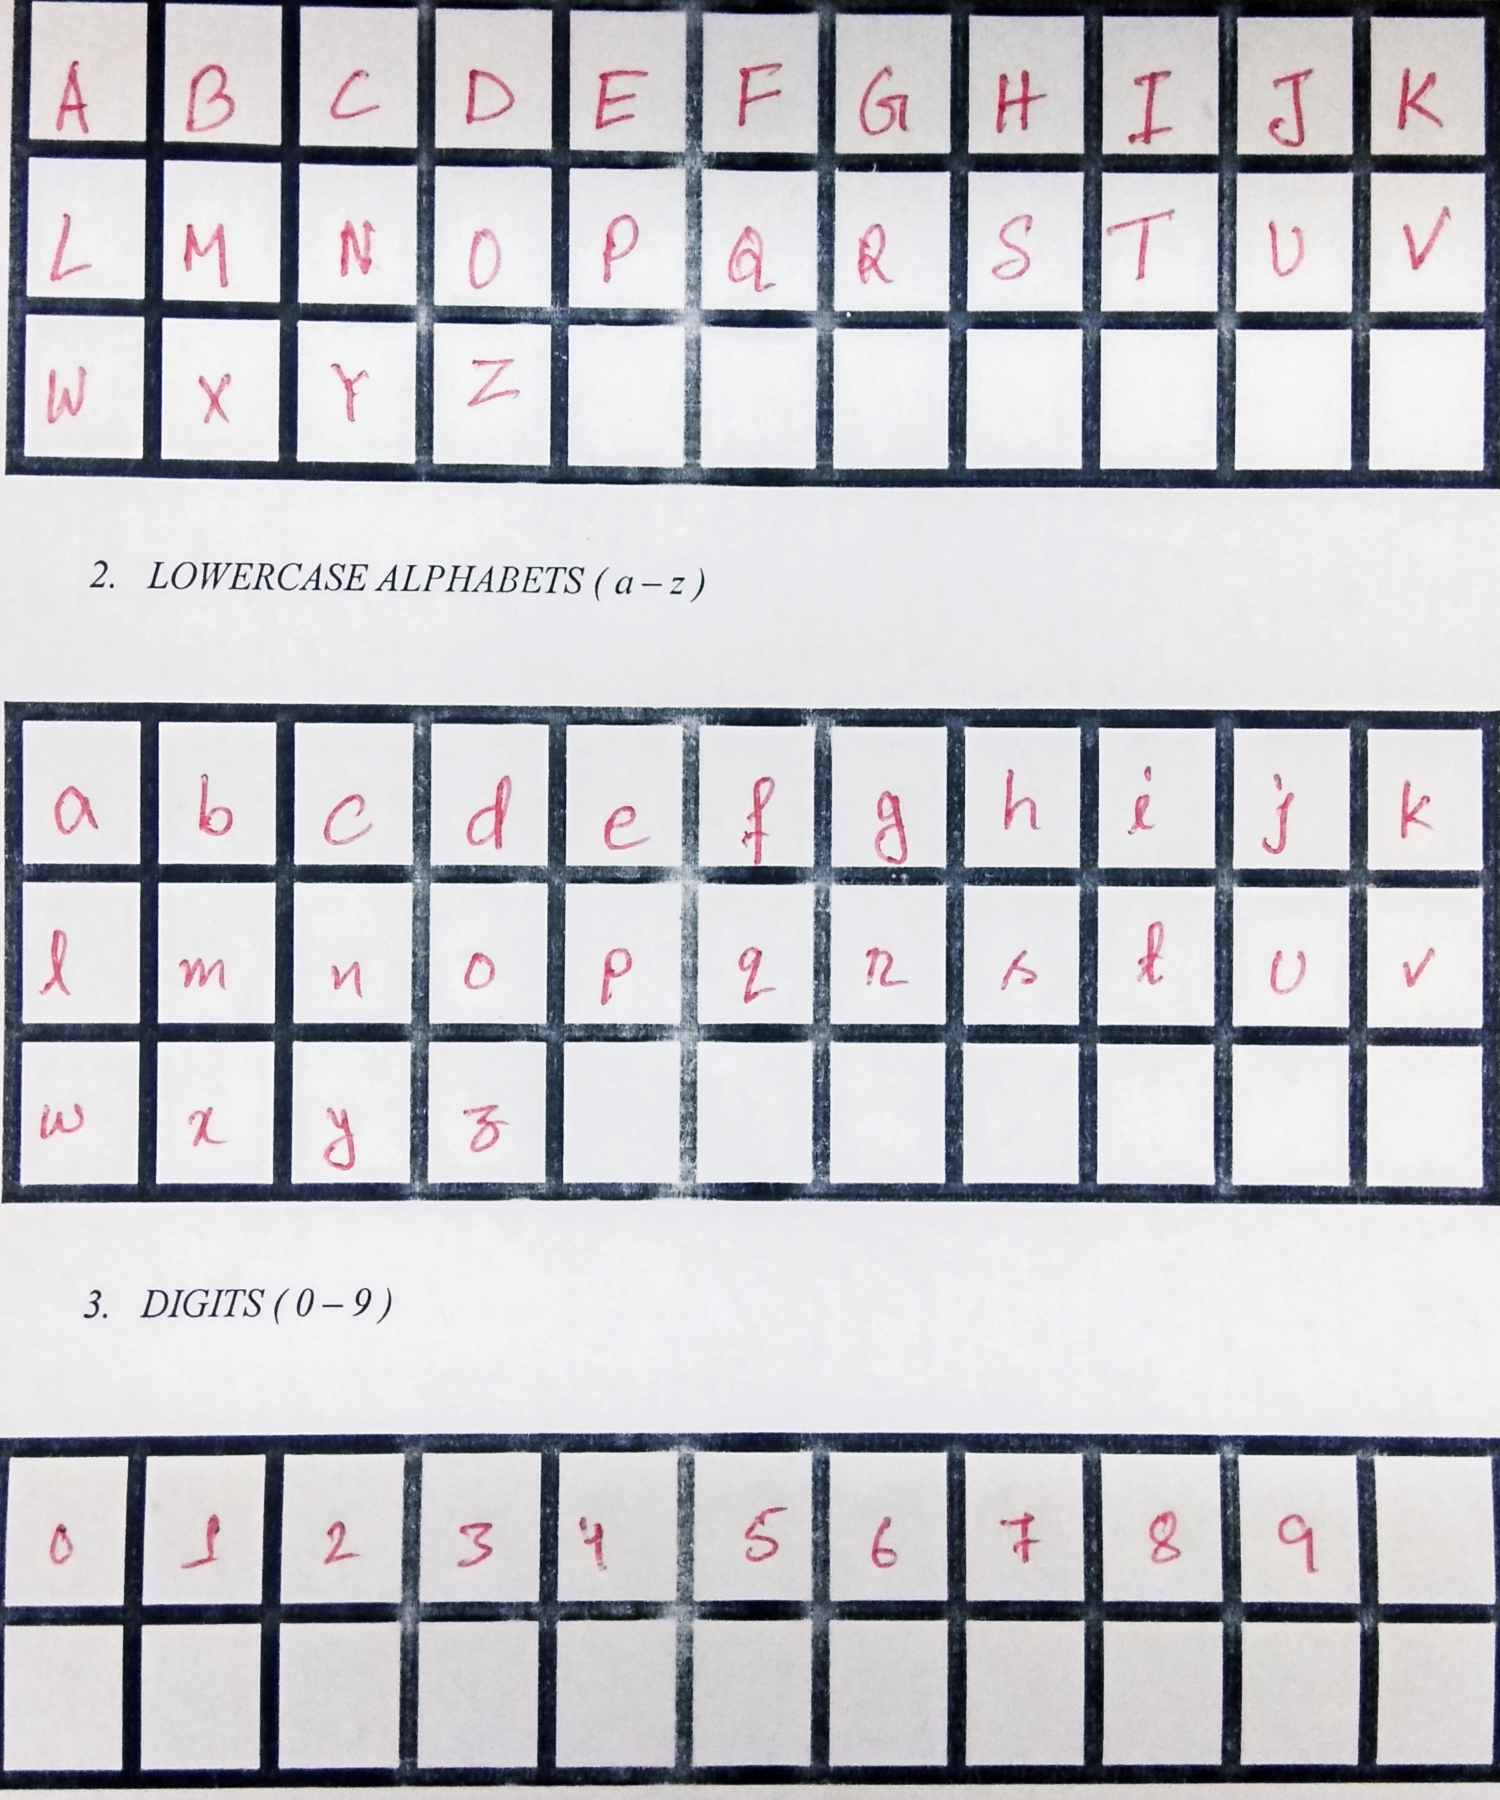 A B C D E F G H I J K
L M N O P Q R S T U V
W X Y Z
2. LOWERCASE ALPHABETS ( a – z )
a b c d e f g h i j k
l m n o p q r s t u v
w x y z
3. DIGITS ( 0 – 9 )
0 1 2 3 4 5 6 7 8 9